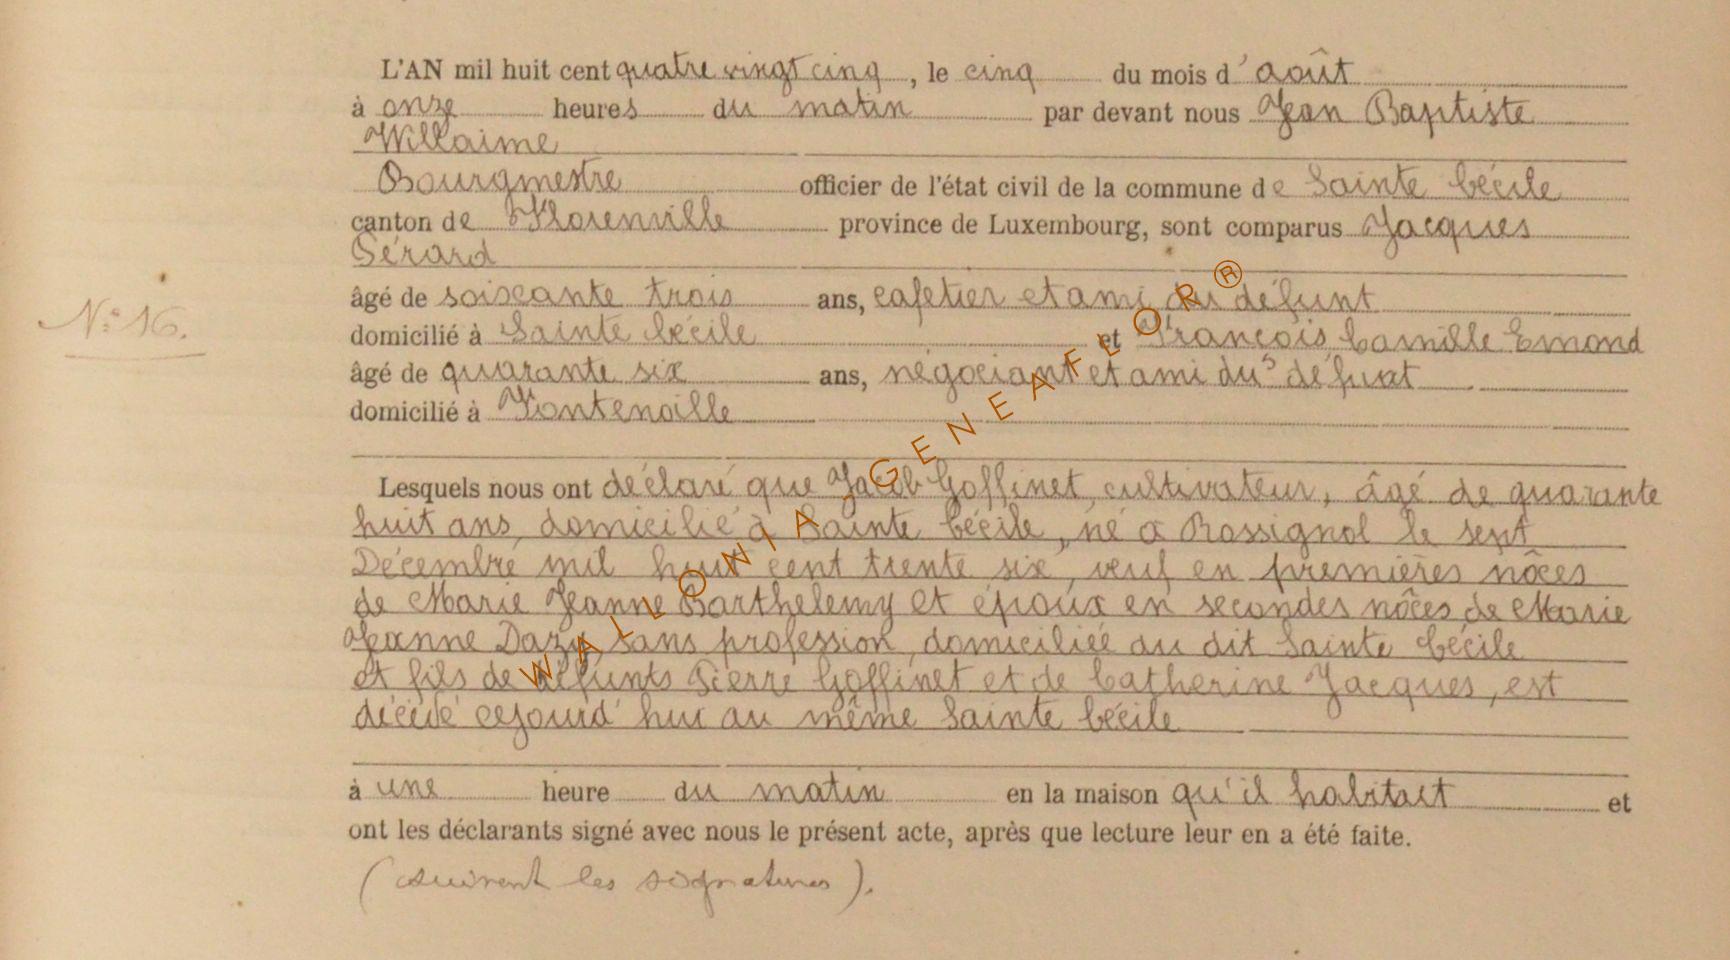 L'AN mil huit cent quatre vingt cinq, le cinq du mois d'août
à onze heures du matin par devant nous Jean Baptiste
Willaime
Bourgmestre officier de l'état civil de la commune de Sainte Cécile
canton de Florenville province de Luxembourg, sont comparus Jacques
Gérard
N° 16.
âgé de soixante trois ans, cafetier et ami du défunt
domicilié à Sainte Cécile et François Camille Emond
âgé de quarante six ans, négociant et ami du défunt
domicilié à Fontenoille
Lesquels nous ont déclaré que Jacob Goffinet, cultivateur, âgé de quarante
huit ans, domicilié à Sainte Cécile, né à Rossignol le sept
Décembre mil huit cent trente six, veuf en premières nôces
de Marie Jeanne Barthelemy et époux en secondes nôces de Marie
Jeanne Dazy, sans profession, domiciliée au dit Sainte Cécile
et fils de défunts Pierre Goffinet et de Catherine Jacques, est
décédé cejourd'hui au même Sainte Cécile
à une heure du matin en la maison qu'il habitait et
ont les déclarants signé avec nous le présent acte, après que lecture leur en a été faite.
(suivent les signatures).
WALLONIA-GENEAFLOR®